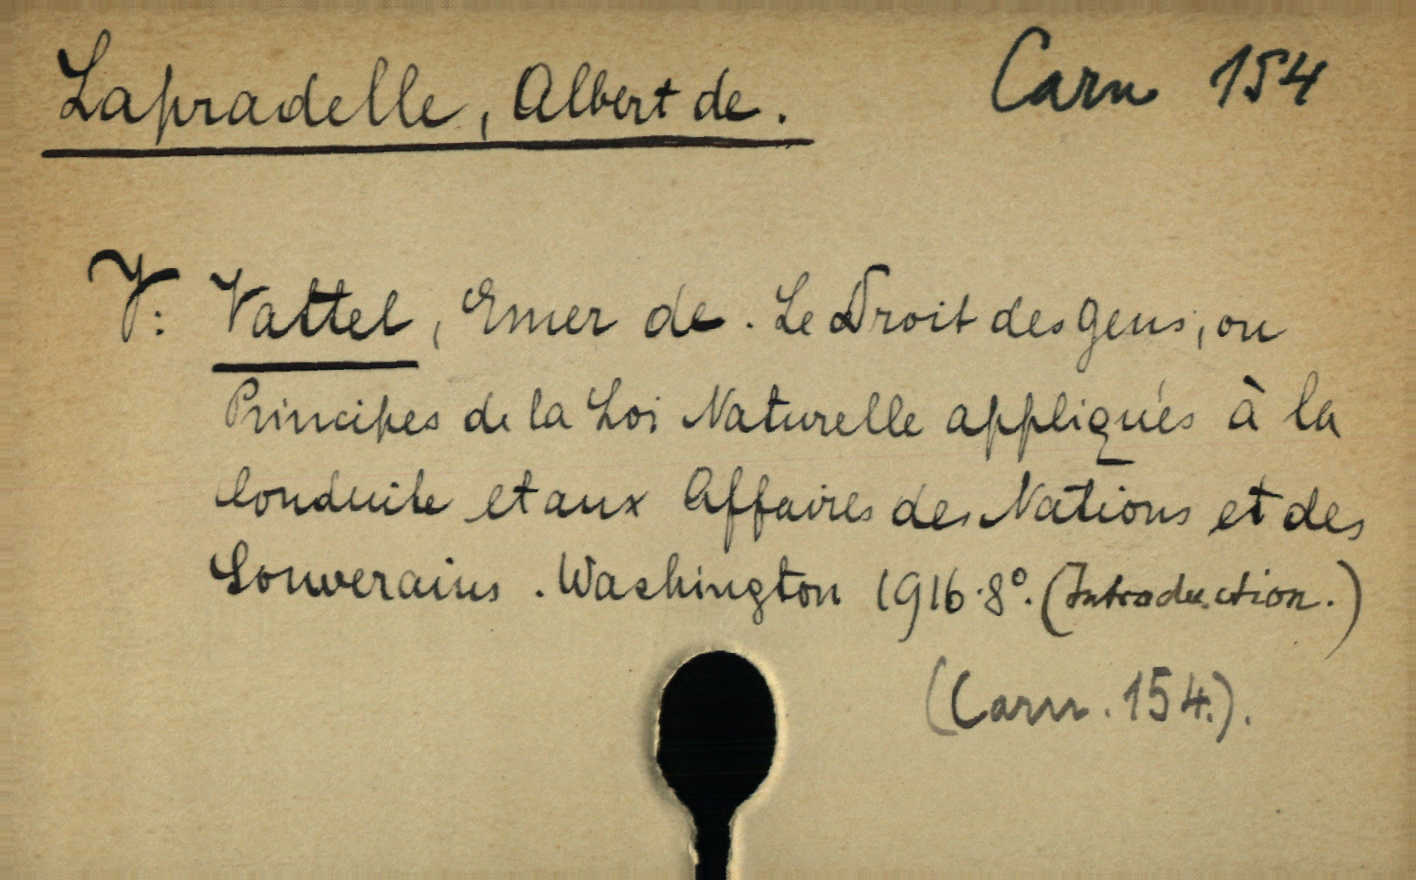 Lapradelle, Albert de. Carn 154
V: Vattel, Emer de. Le Droit des gens, ou
Principes de la Loi Naturelle appliqués à la
Conduite et aux Affaires des Nations et des
Souverains. Washington 1916. 8°. (Introduction.)
(Carn. 154.).